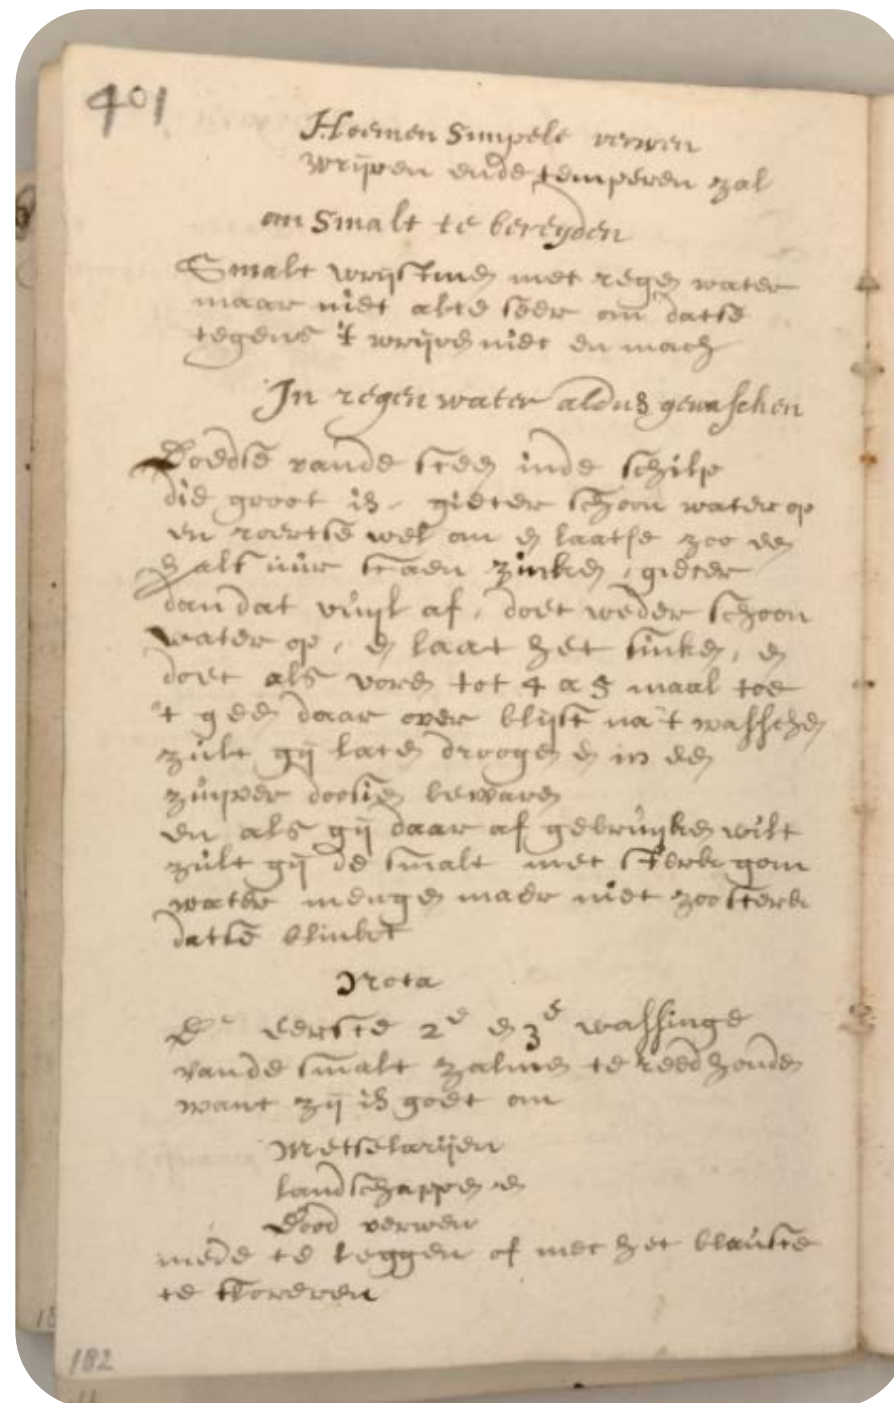 401
Hoemen Simpele verwen
wrijven ende temperen zal
om Smalt te bereyden
Smalt wrijftmen met regen water
maar niet alte seer om datse
tegens 't wrijven niet en mach
In regen water aldus gewasschen
Doedse vande steen inde schilp
die groot is, gieter schoon water op
en roertse wel om en laatse zoo een
half uur staen zinken, gieter
dan dat vuyl af, doet weder schoon
water op, en laat het sinken, en
doet als voren tot 4 a 5 maal toe
't geen daar over blijft na't wasschen
zult gij laten droogen en in een
zuyver doosien bewaren
en als gij daar af gebruyken wilt
zult gij de smalt met sterk gom
water mengen maer niet zoo sterk
datse blinket
Nota
De eerste 2e en 3e wassinge
vande smalt zalmen gereed houden
want zij is goet om
Metselarijen
landschappen en
Dood verwen
mede te leggen of met het blauste
te floreren
182